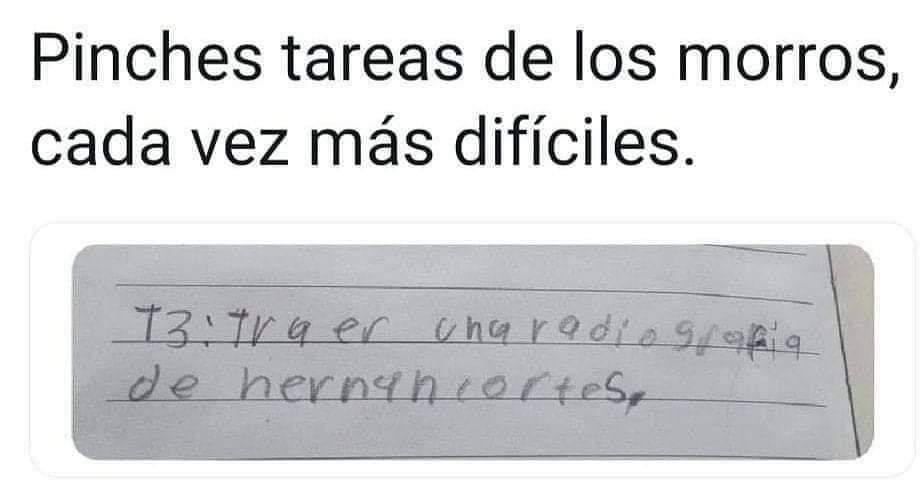 Pinches tareas de los morros,
cada vez más difíciles.
T3: Traer una radiografia
de hernan cortes,